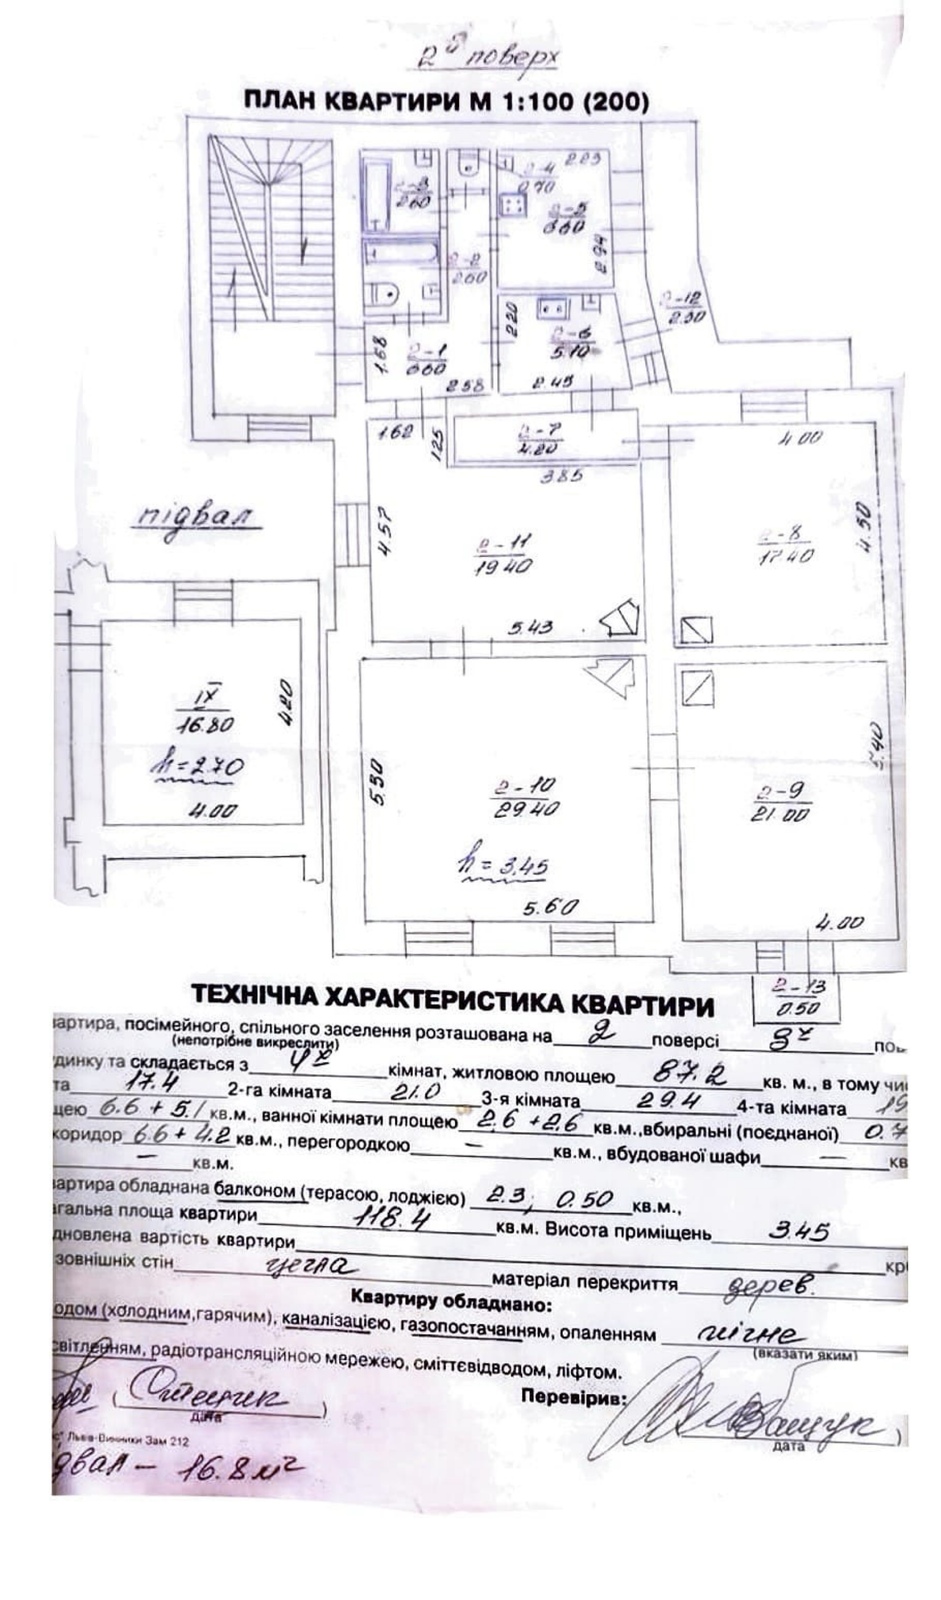 2й поверх
ПЛАН КВАРТИРИ М 1:100 (200)
2-3
2.60
2-4
0.70
2.23
2-5
6.60
2.94
2-2
2.60
2-12
2.30
1.68
2-1
6.60
2.58
2.20
2-6
5.10
2.45
1.62
1.25
2-7
4.20
3.85
4.00
підвал
4.57
2-11
19.40
5.43
2-8
17.40
4.50
IX
16.80
4.20
h=2.70
4.00
5.30
2-10
29.40
h=3.45
5.60
2-9
21.00
5.40
4.00
2-13
0.50
ТЕХНІЧНА ХАРАКТЕРИСТИКА КВАРТИРИ
вартира, посімейного, спільного заселення розташована на 2 поверсі 3х по
(непотрібне викреслити)
динку та складається з 4х кімнат, житловою площею 87.2 кв. м., в тому чи
та 17.4 2-га кімната 21.0 3-я кімната 29.4 4-та кімната 19
щею 6.6 + 5.1 кв.м., ванної кімнати площею 2.6 + 2.6 кв.м.,вбиральні (поєднаної) 0.7
коридор 6.6 + 4.2 кв.м., перегородкою — кв.м., вбудованої шафи — кв
— кв.м.
вартира обладнана балконом (терасою, лоджією) 2.3; 0.50 кв.м.,
гальна площа квартири 118.4 кв.м. Висота приміщень 3.45
дновлена вартість квартири кр
зовнішніх стін цегла матеріал перекриття дерев.
Квартиру обладнано:
одом (холодним,гарячим), каналізацією, газопостачанням, опаленням пічне
(вказати яким)
світленням, радіотрансляційною мережею, сміттєвідводом, ліфтом.
Перевірив:
дата
дата
Львів-Винники Зам 212
двал – 16.8 м²